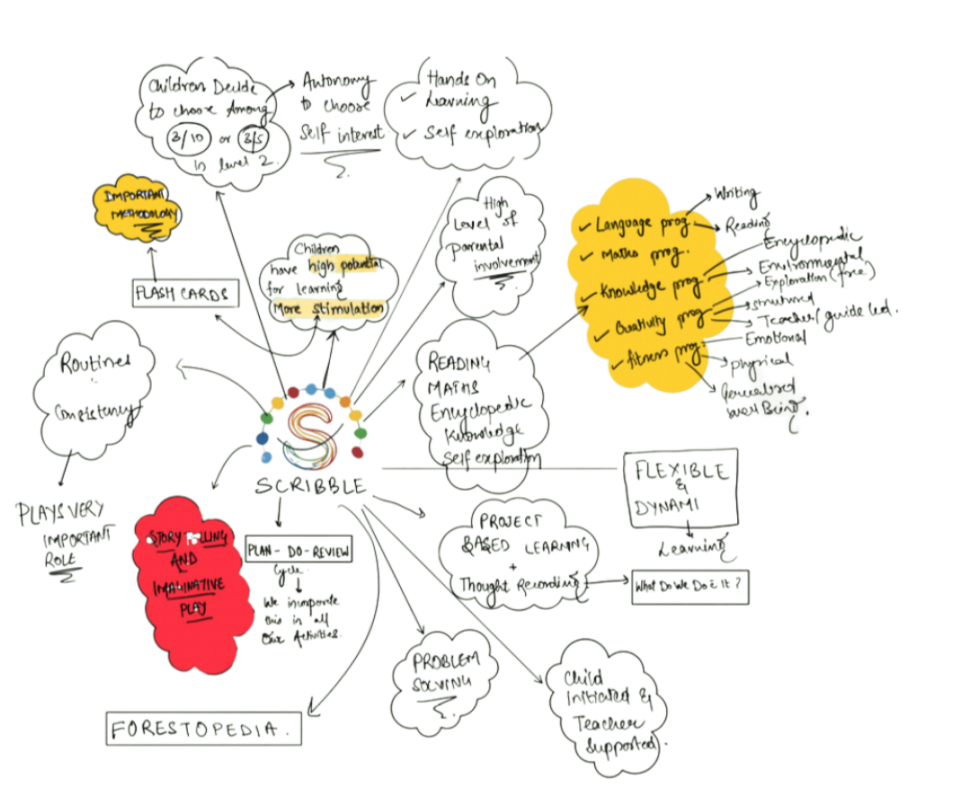 Children Decide
to choose Among
3/10 or 3/5
in level 2.
Autonomy
to choose
Self interest
Hands On
Learning
Self exploration
IMPORTANT
METHODOLOGY
FLASH CARDS
Children
have high potential
for learning
More stimulation
High
Level of
parental
involvement
Language prog
Maths prog.
Knowledge prog
Creativity prog
fitness prog
Writing
Reading
Encyclopedic
Environmental
Exploration (free)
structured
Teacher/guide led.
Emotional
physical
well Being
Routines
Consistency
PLAYS VERY
IMPORTANT
ROLE
READING
MATHS
Encyclopedic
Knowledge
Self exploration
S
SCRIBBLE
FLEXIBLE
&
DYNAMI
Learning
STORY TELLING
AND
IMAGINATIVE
PLAY
PLAN - DO - REVIEW
Cycle.
We incorporate
this in all
Our Activities.
PROJECT
BASED LEARNING
+
Thought Recording
What Do We Do
It?
PROBLEM
SOLVING
Child
Initiated &
Teacher
Supported.
FORESTOPEDIA.